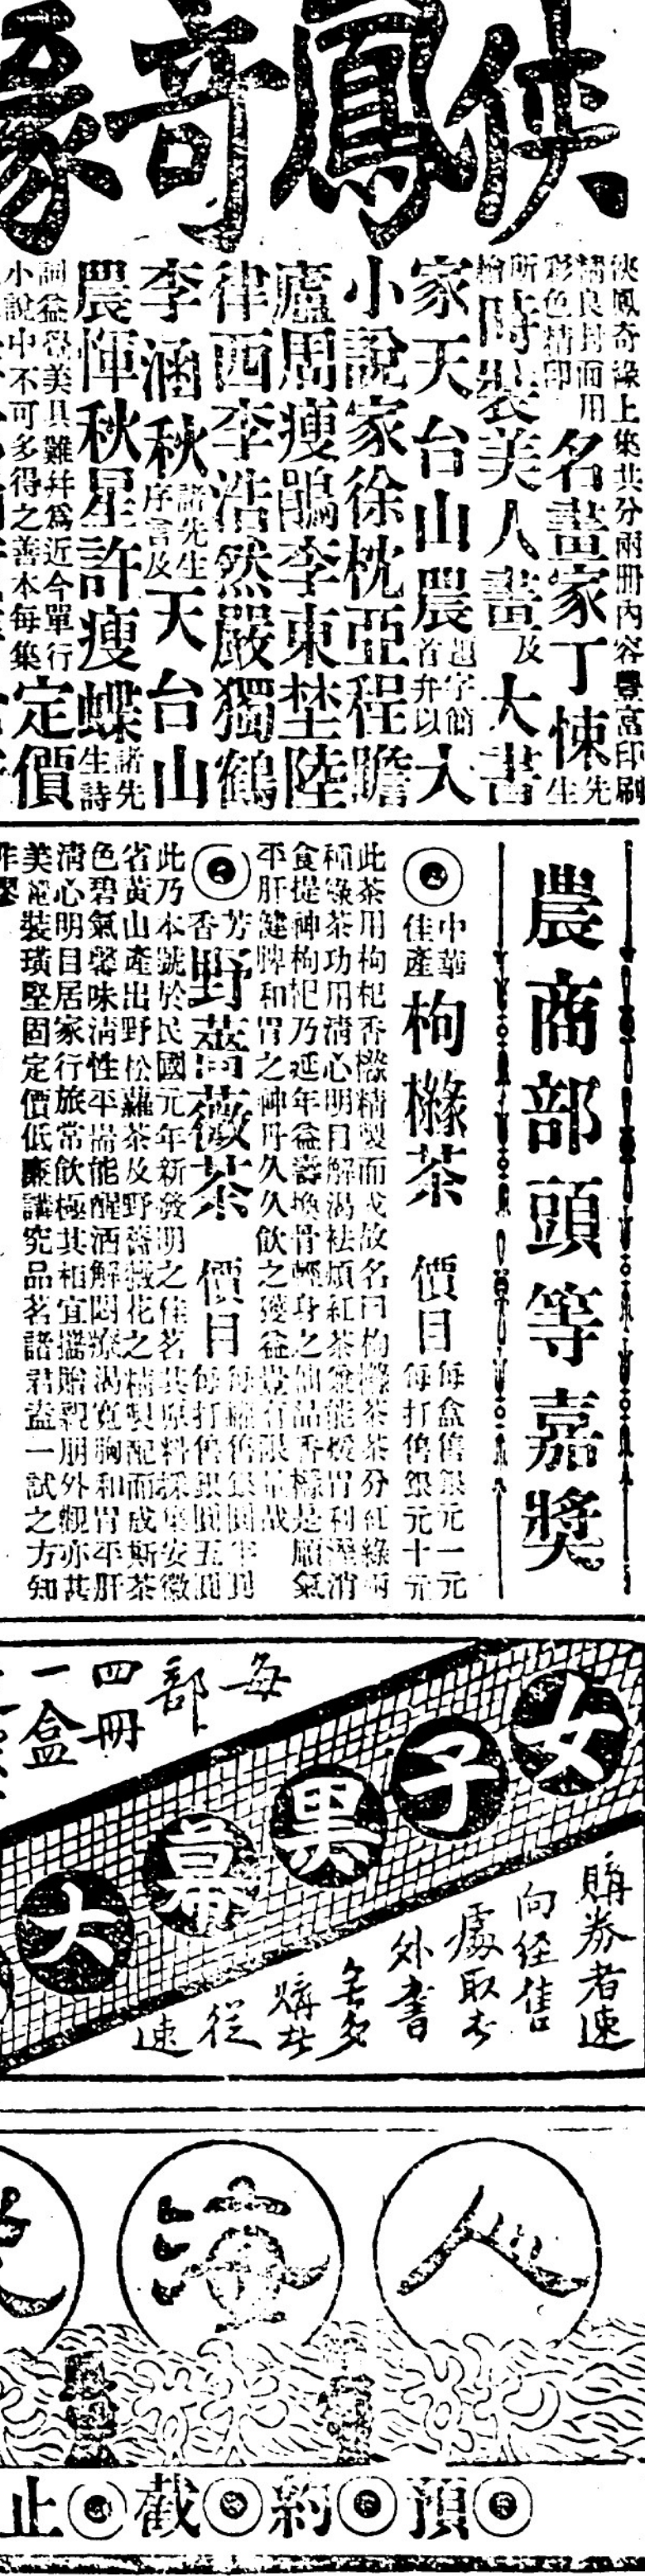 俠鳳奇緣
俠鳳奇緣上集共分兩冊內容豐富印刷
精良封面用
彩色精印
名畫家丁悚先生
所繪時裝美人畫及大書
家天台山農題字簡首弁以大
小說家徐枕亞程瞻
廬周瘦鵑李東埜陸
律西李浩然嚴獨鶴
李涵秋諸先生序言及天台山
農惲秋星許瘦蝶諸先生詩
詞益覺美具難幷爲近今單行
小說中不可多得之善本每集
定價
農商部頭等嘉獎
中華佳產
枸櫞茶
價目
每盒售銀元一元
每打售銀元十元
此茶用枸杞香櫞精製而成故名曰枸櫞茶茶分紅綠兩
種綠茶功用淸心明目解渴祛煩紅茶兼能煖胃利溼消
食提神枸杞乃延年益壽換骨輕身之仙品香櫞是順氣
平肝健脾和胃之神丹久久飲之獲益豈有限量哉
芳香
野薔薇茶
價目
每打售銀圓五圓
此乃本號於民國元年新發明之佳茗其原料採集安徽
省黃山產出野松蘿茶及野薔薇花之精製配而成斯茶
色碧氣馨味淸性平喘能醒酒解悶療渴寬胸和胃平肝
淸心明目居家行旅常飲極其相宜攜貽親朋外觀亦甚
美麗裝璜堅固定價低廉講究品茗諸君盍一試之方知
非謬
女子黑幕大
每部
四冊
一盒
購券者速
向経售
處取書
外書
無多
購者
從速
人
海
預約截止